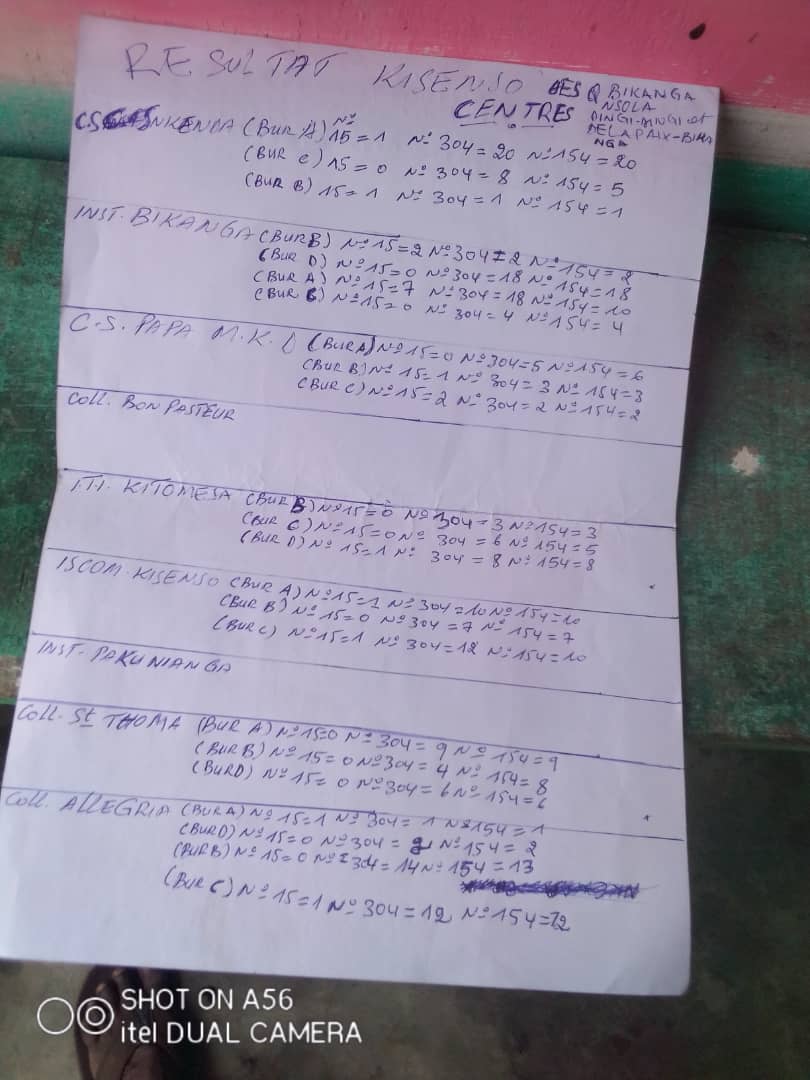 RESULTAT KISENSO DES Q BIKANGA
NSOLA
CENTRES DINGI-DINGI et
DE LA PAIX-BIKA
NGA
C.S. NKENDA (BUR A) N° 15 = 1 N° 304 = 20 N° 154 = 20
(BUR C) 15 = 0 N° 304 = 8 N° 154 = 5
(BUR B) 15 = 1 N° 304 = 1 N° 154 = 1
INST. BIKANGA (BUR B) N° 15 = 2 N° 304 = 2 N° 154 = 2
(BUR D) N° 15 = 0 N° 304 = 18 N° 154 = 18
(BUR A) N° 15 = 7 N° 304 = 18 N° 154 = 10
(BUR N° 15 = 0 N° 304 = 4 N° 154 = 4
C.S. PAPA M.K.D (BUR A) N° 15 = 0 N° 304 = 5 N° 154 = 6
(BUR B) N° 15 = 1 N° 304 = 3 N° 154 = 3
(BUR C) N° 15 = 2 N° 304 = 2 N° 154 = 2
Coll. BON PASTEUR
I.T.I. KITOMESA (BUR B) N° 15 = 0 N° 304 = 3 N° 154 = 3
(BUR C) N° 15 = 0 N° 304 = 6 N° 154 = 5
(BUR D) N° 15 = 1 N° 304 = 8 N° 154 = 8
ISCOM. KISENSO (BUR A) N° 15 = 1 N° 304 = 10 N° 154 = 10
(BUR B) N° 15 = 0 N° 304 = 7 N° 154 = 7
(BUR C) N° 15 = 1 N° 304 = 12 N° 154 = 10
INST. PAKUNIANGA
Coll. St THOMA (BUR A) N° 15=0 N° 304 = 9 N° 154 = 9
(BUR B) N° 15 = 0 N° 304 = 4 N° 154 = 8
(BUR D) N° 15 = 0 N° 304 = 6 N° 154 = 6
Coll. ALLEGRIA (BUR A) N° 15 = 1 N° 304 = 1 N° 154 = 1
(BUR D) N° 15 = 0 N° 304 = 2 N° 154 = 2
(BUR B) N° 15 = 0 N° 304 = 14 N° 154 = 13
(BUR C) N° 15 = 1 N° 304 = 12 N° 154 = 12
SHOT ON A56
itel DUAL CAMERA